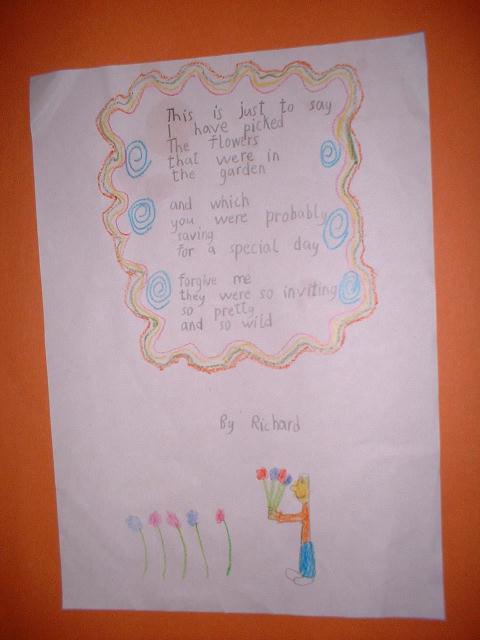 This is just to say
I have picked
The flowers
that were in
the garden
and which
you were probably
saving
for a special day
forgive me
they were so inviting
so pretty
and so wild
By Richard